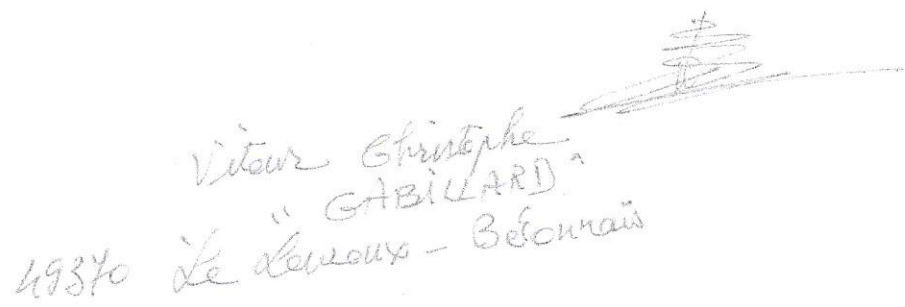 Viteur Christophe
"GABILLARD"
49370 Le Louroux-Béconnais